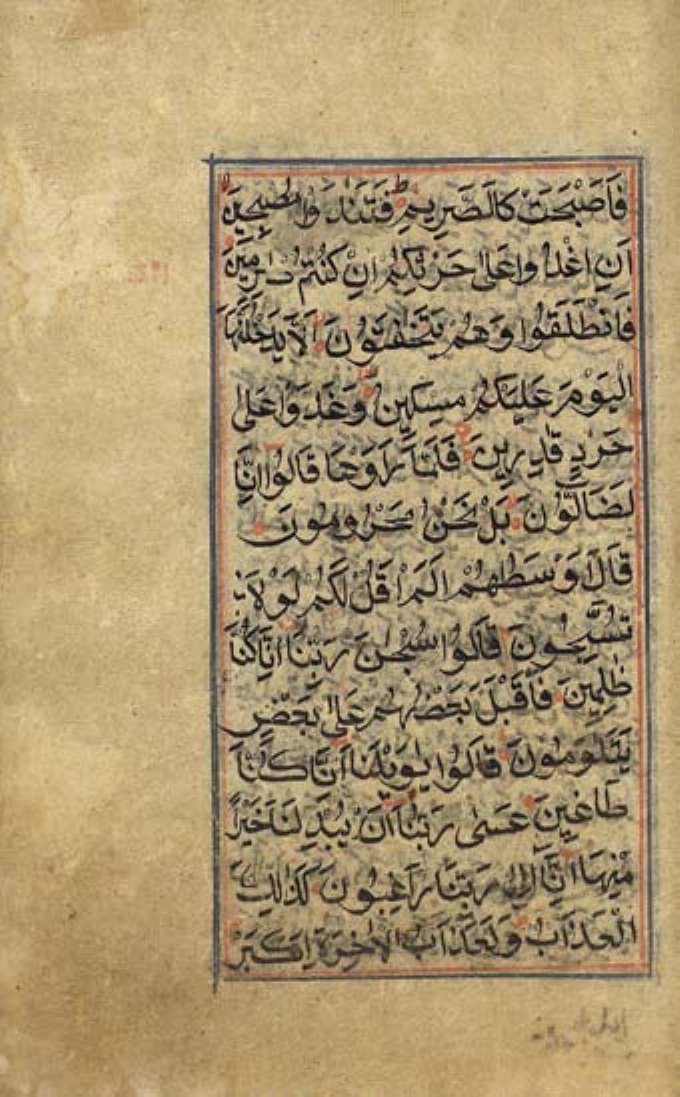 فَاَصْبَحَتْ كَالصَّرِيمِ فَتَنَادَوْا مُصْبِحِينَ
اَنِ اغْدُوا عَلٰى حَرْثِكُمْ اِنْ كُنْتُمْ صٰرِمِينَ
فَانْطَلَقُوا وَهُمْ يَتَخَافَتُونَ اَلَّا يَدْخُلَنَّهَا
الْيَوْمَ عَلَيْكُمْ مِسْكِينٌ وَغَدَوْا عَلٰى
حَرْدٍ قٰدِرِينَ فَلَمَّا رَاَوْهَا قَالُوا اِنَّا
لَضَالُّونَ بَلْ نَحْنُ مَحْرُومُونَ
قَالَ اَوْسَطُهُمْ اَلَمْ اَقُلْ لَكُمْ لَوْلَا
تُسَبِّحُونَ قَالُوا سُبْحٰنَ رَبِّنَا اِنَّا كُنَّا
ظٰلِمِينَ فَاَقْبَلَ بَعْضُهُمْ عَلٰى بَعْضٍ
يَتَلَاوَمُونَ قَالُوا يٰوَيْلَنَا اِنَّا كُنَّا
طَاغِينَ عَسٰى رَبُّنَا اَنْ يُبْدِلَنَا خَيْرًا
مِنْهَا اِنَّا اِلٰى رَبِّنَا رَاغِبُونَ كَذٰلِكَ
الْعَذَابُ وَلَعَذَابُ الْاٰخِرَةِ اَكْبَرُ